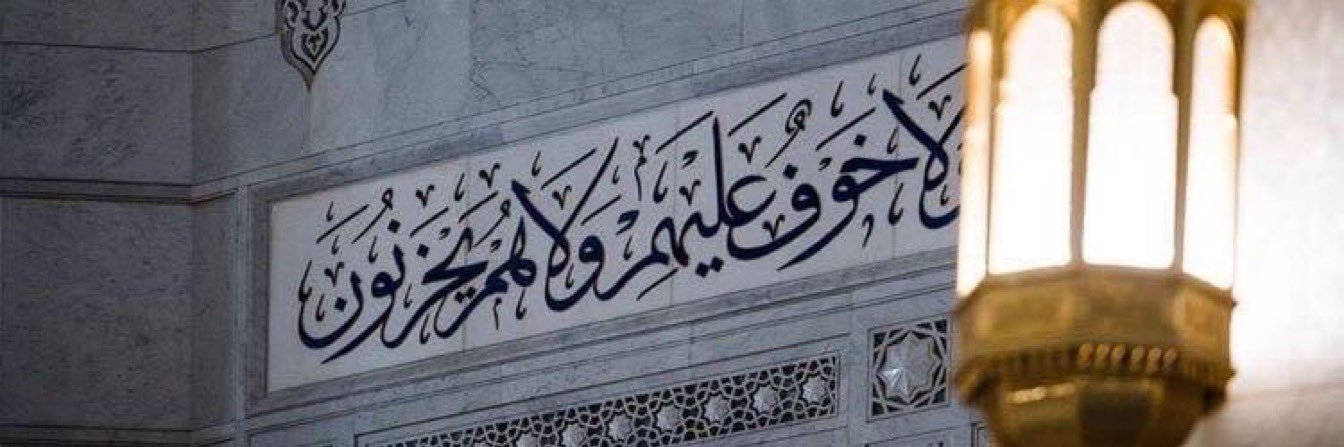 لَا خَوْفٌ عَلَيْهِمْ وَلَا هُمْ يَحْزَنُونَ